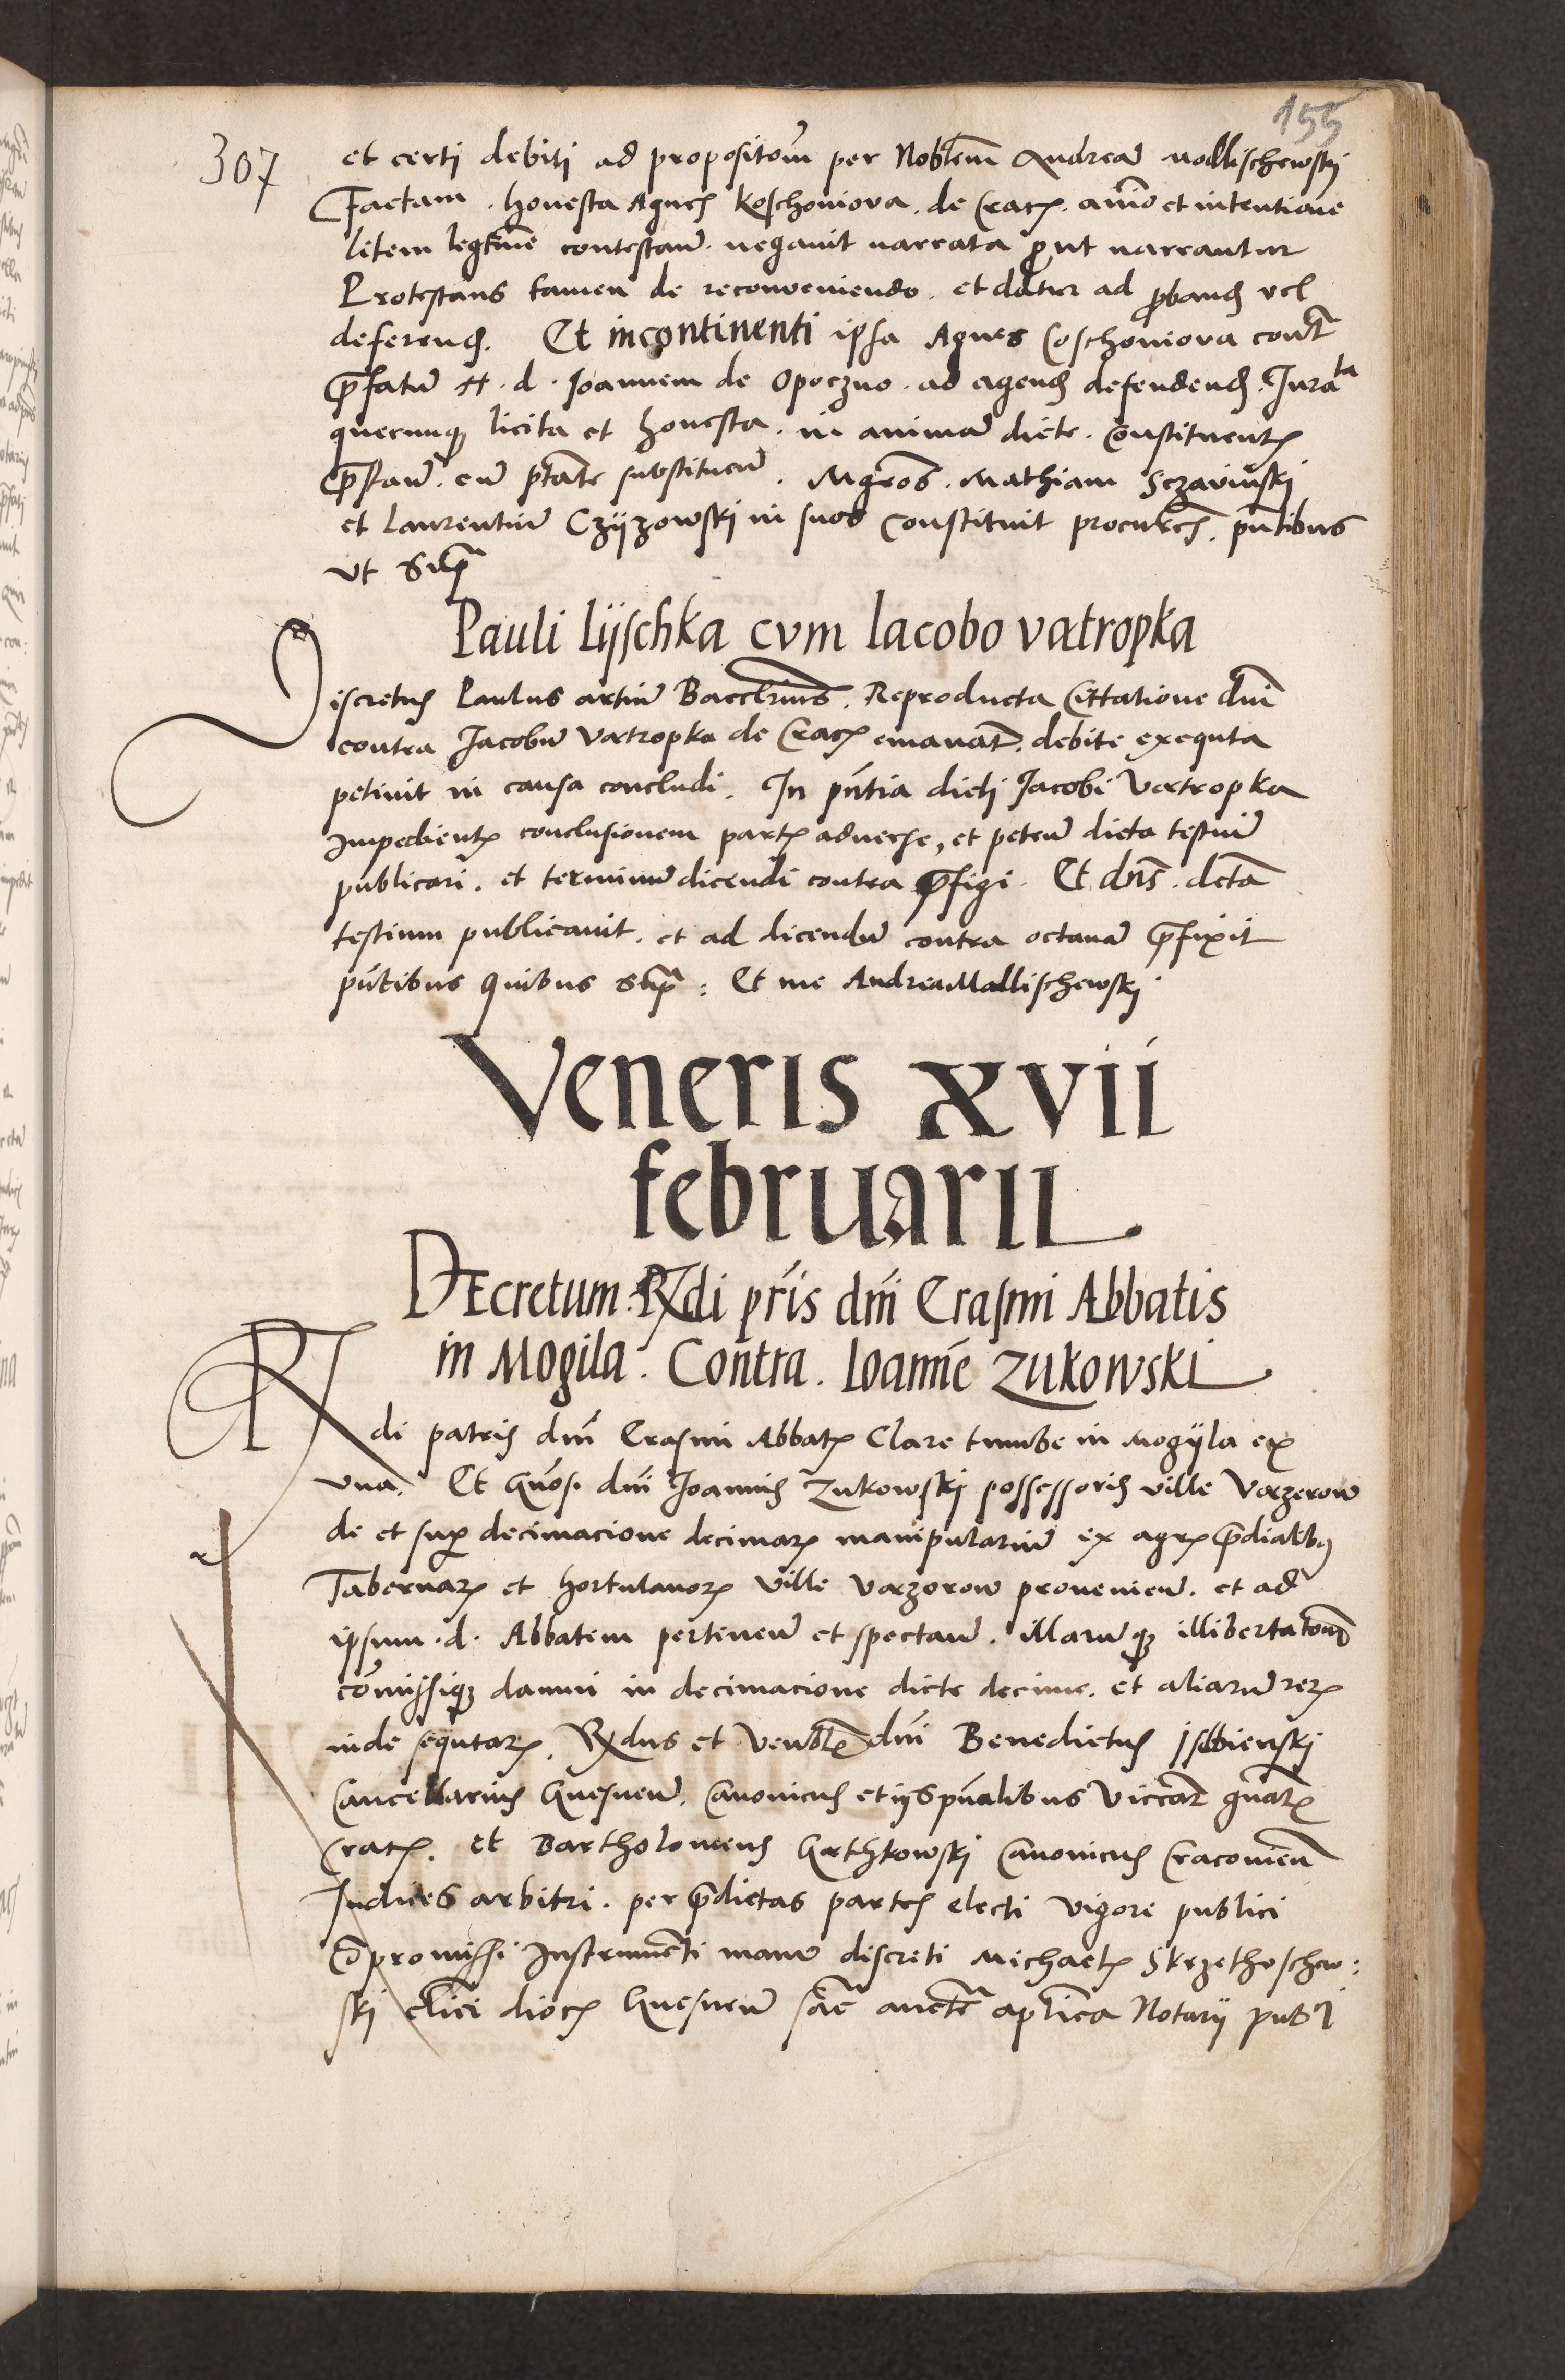 155
307
et certi debiti ad propositom̄ per Nobłem Andreā Mallischewskij
Factam . honesta Agnes Koschoniova . de Crac. aīo et intentione
litem legttīme contestań. negavit narrata ꝓut narrantur
Protestans tamen de reconveniendo . et datur ad ꝓband vel
deferend. Et incontinenti ipsa Agnes Coschoniova const
p̄fatū H . d . Ioannem de Opoczno . ad agend defendend . Jura
quecunqꝫ licita et honesta . in animā dicte . constituentꝭ
p̄stań. cū ptāte substituēd . Mgros . Mathiam Sczavinskij
et Laurentiū Czijzowskij in suos constituit procures . pn̄tibus
vt Sup̄
Pauli Lijschka cvm Iacobo vatropka
Discretus Paulus artiū Bacclrius . Reproducta Cittatione dnī
contra Jacobū Vatropka de Crac emanat . debite exequta
petivit in causa concludi . In pn̄tia dicti Jacobi Vatropka
Impedientꝭ conclusionem partꝭ adverse, et peteń dicta testiū
publicari . et terminū dicendi contra p̄figi . Et dns̄ . dcta
testium publicavit . et ad dicendū contra octavā p̄fixit
pn̄tibus quibus Sup̄ : Et me Andrea Mallischewskj
Veneris XVII
februarii
DEcretum Rdi pr̄is dnī Erasmi Abbatis
in Mogila . Contra . Ioannē Zukowski
Rdi patris dnī Erasmi Abbatꝭ Clare tumbe in Mogijla ex
vna . Et Gn̄osi dnī Joannis Zukowskij possessoris ville Vazerow
de et sup̱ decimacione decimarꝝ manipulariū ex agrꝭ p̄dialibꝫ
Tabernarꝝ et hortulanorꝝ ville Vazorow provenień. et ad
ipsum . d . Abbatem pertineń et spectań . illarūqꝫ illibertatom̄
com̄issiqꝫ damni in decimacione dicte decime . et aliarū rerꝝ
inde sequtarꝝ . Rdus et Venbłes dnī Benedictus Isbienskij
Cancellarius Gnesneń . Canonicus et iÿspūalibus Viccari gn̄alꝭ
Crac . et Bartholomeus Ganthkowski Canonicus Cracovień
Judices arbitri . per p̄dictas partes electi Vigore publici
ꝯpromissi Instrumenti manū discreti Michaelꝭ Skrzethoschew:
skj cl̄ici dioc Gnesneń sac̄ auctē apl̄ica Notarij publ